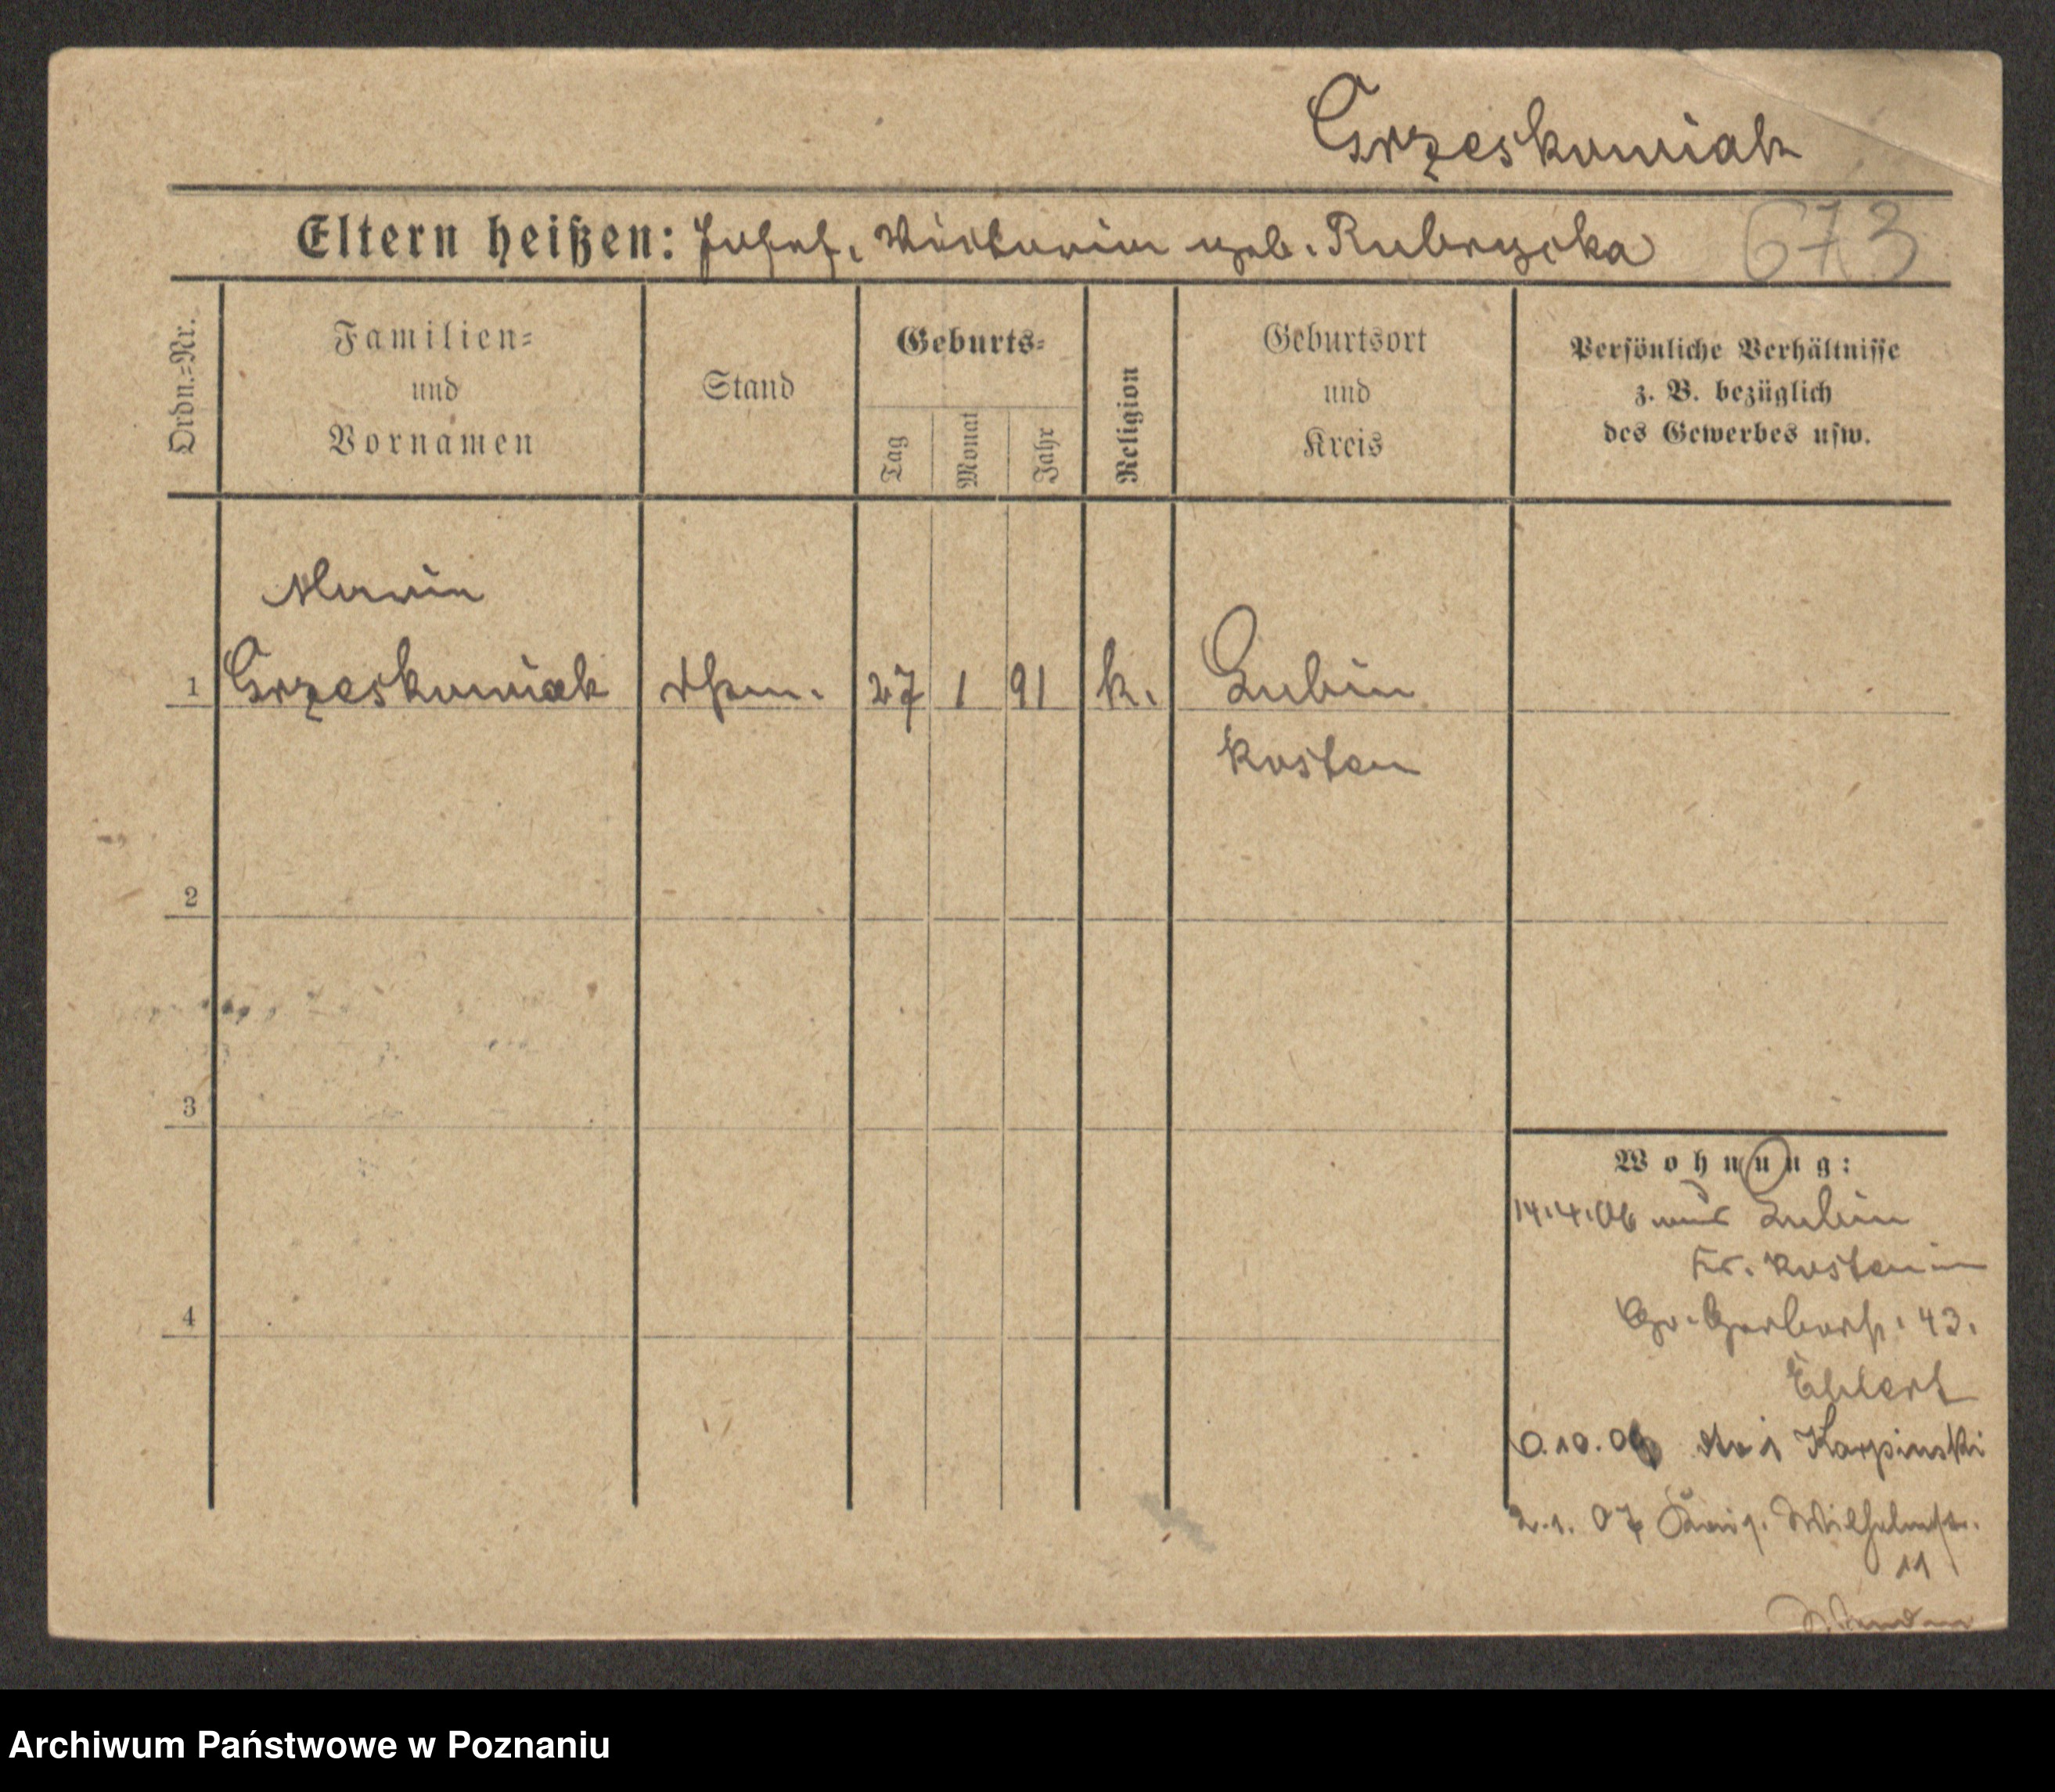 Grzeskowiak
Eltern heißen: Josef, Victoria geb. Rubrycka 673
Ordn.=Nr.
Familien=
und
Vornamen
Stand
Geburts=
Tag
Monat
Jahr
Religion
Geburtsort
und
Kreis
Persönliche Verhältnisse
z. B. bezüglich
des Gewerbes usw.
Maria
1 Grzeskowiak 27 1 91 k. Lubin
Kosten
2
3
4
Wohnung:
14.4.06 aus Lubin
Kr. Kosten in
Gr. Gerberstr. 43.
Ehlert
10.06 Karpinski
2.1.07 Wilhelmstr.
11
Archiwum Państwowe w Poznaniu